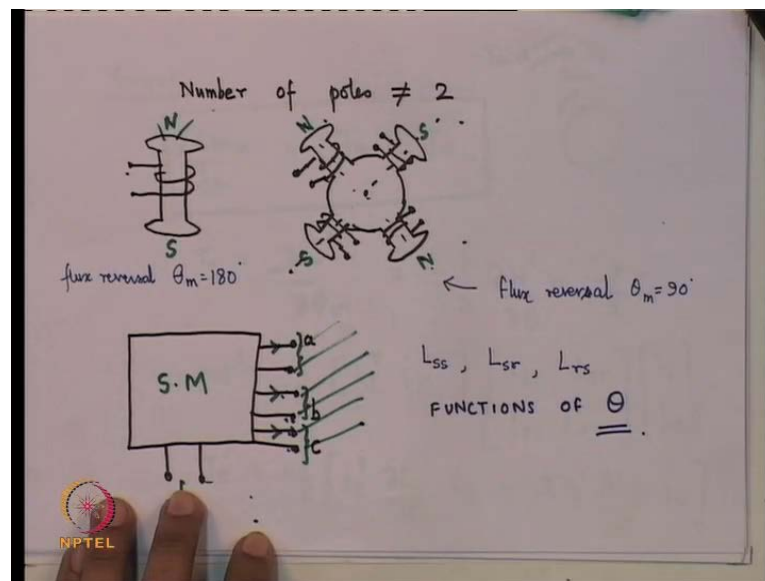 Number of poles ≠ 2
N
N
S
S
S
N
flux reversal θm=180°
← flux reversal θm=90°
S.M
a
b
c
Lss , Lsr , Lrs
FUNCTIONS OF θ.
NPTEL